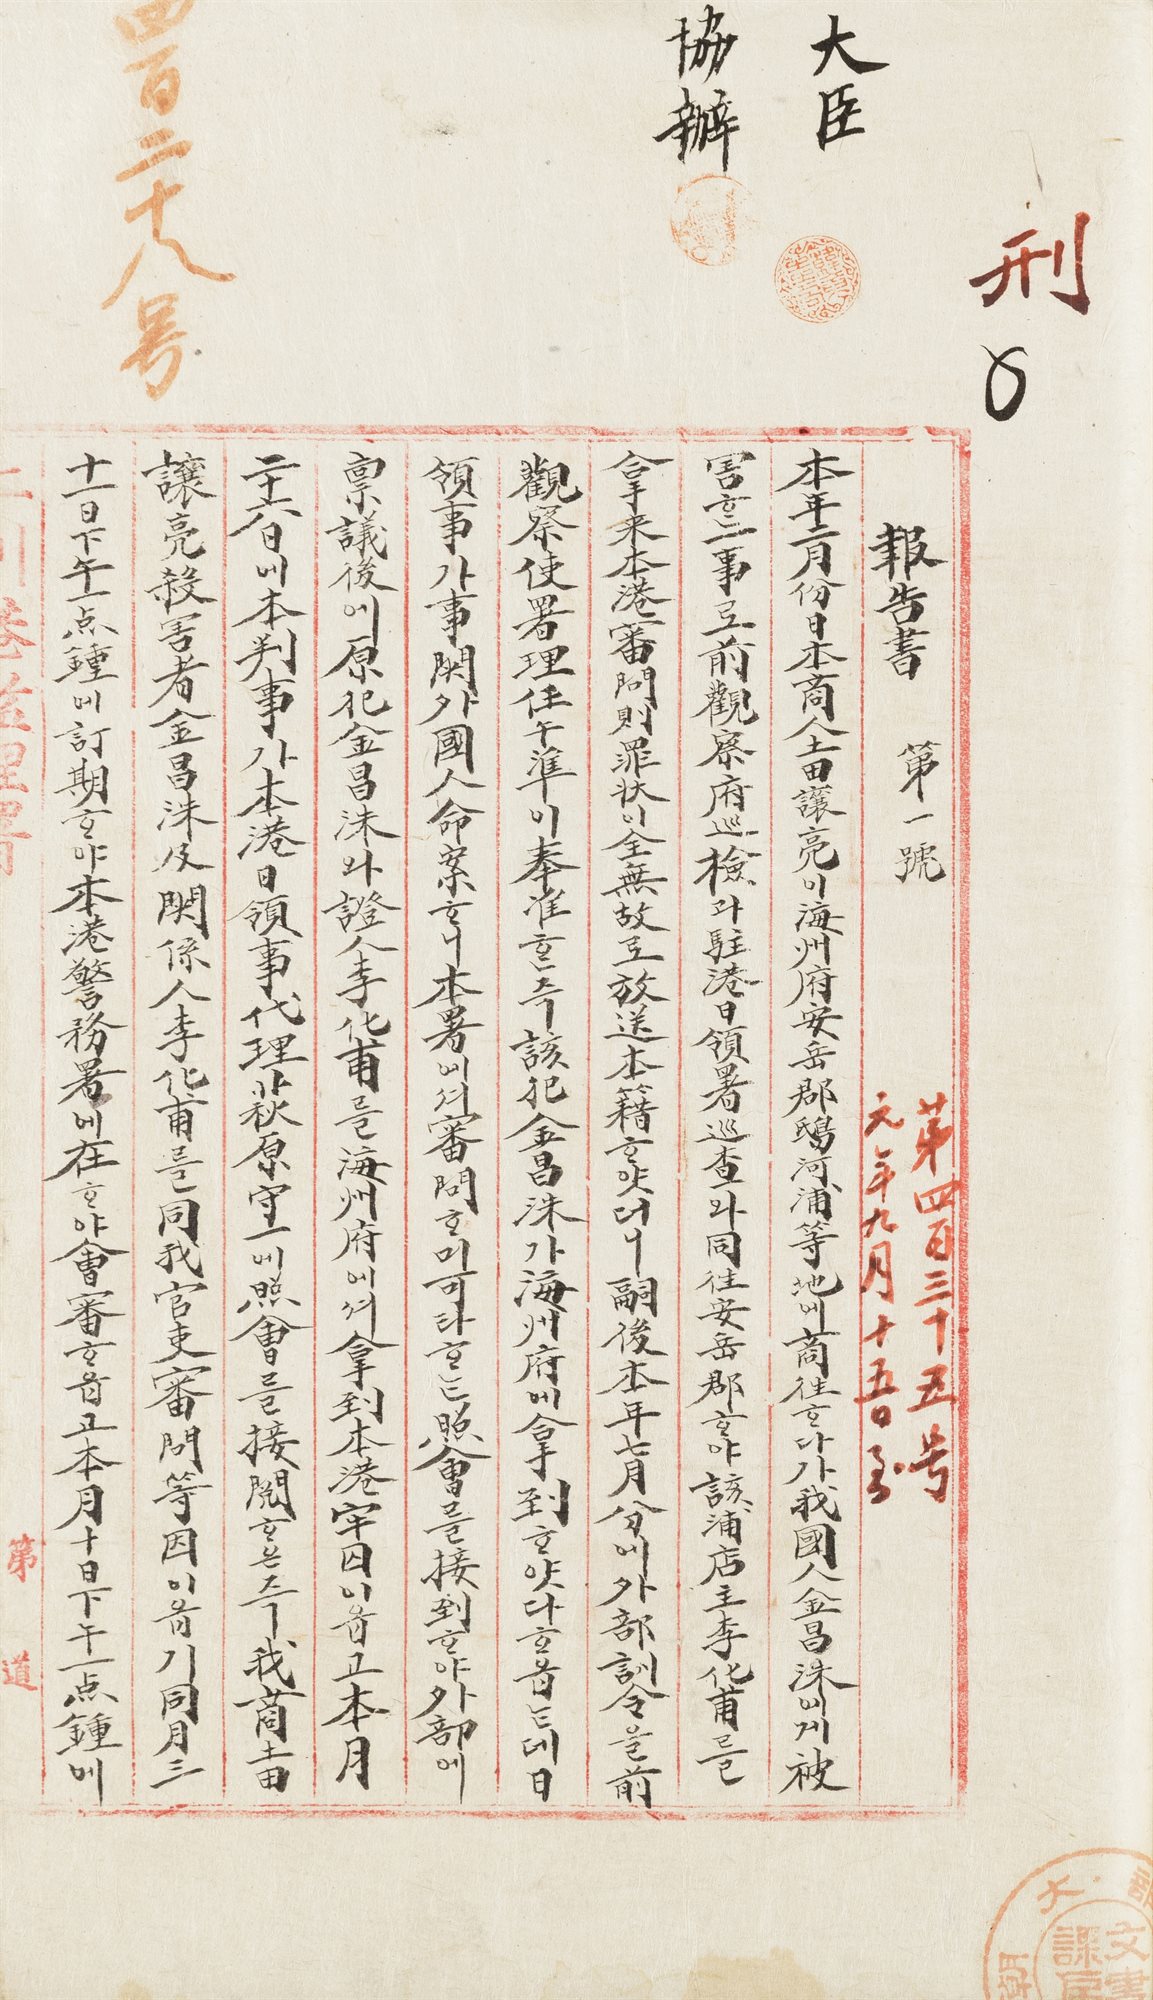 刑
大臣
協辦
四百二十八号
報告書 第一號
第四百三十五号
元年九月十五日
本年三月份日本商人土田讓亮이海州府安岳郡鴟河浦等地에商徃ᄒᆞ다가我國人金昌洙에게被
害ᄒᆞᆫ一事로前觀察府巡檢과駐港日領署巡査와同徃安岳郡ᄒᆞ야該浦店主李化甫를
拿来本港審問則罪状이全無故로放送本籍ᄒᆞ얏더니嗣後本年七月分에外部訓令을前
觀察使署理任午準이奉准ᄒᆞᆫ즉該犯金昌洙가海州府에拿到ᄒᆞ얏다ᄒᆞ옵ᄂᆞᆫ데日
領事가事関外國人命案ᄒᆞ니本署에셔審問ᄒᆞ미可타ᄒᆞᄂᆞᆫ照會를接到ᄒᆞ야外部에
禀議後에原犯金昌洙와證人李化甫를海州府에셔拿到本港牢囚이옵고本月
二十六日에本判事가本港日領事代理萩原守一에照會를接閱ᄒᆞ온즉我商土田
讓亮殺害者金昌洙及関係人李化甫를同我官吏審問等因이옵기同月三
十一日下午一点鍾에訂期ᄒᆞ야本港警務署에在ᄒᆞ야會審ᄒᆞ옵고本月十日下午一点鍾에
第
道
文書課